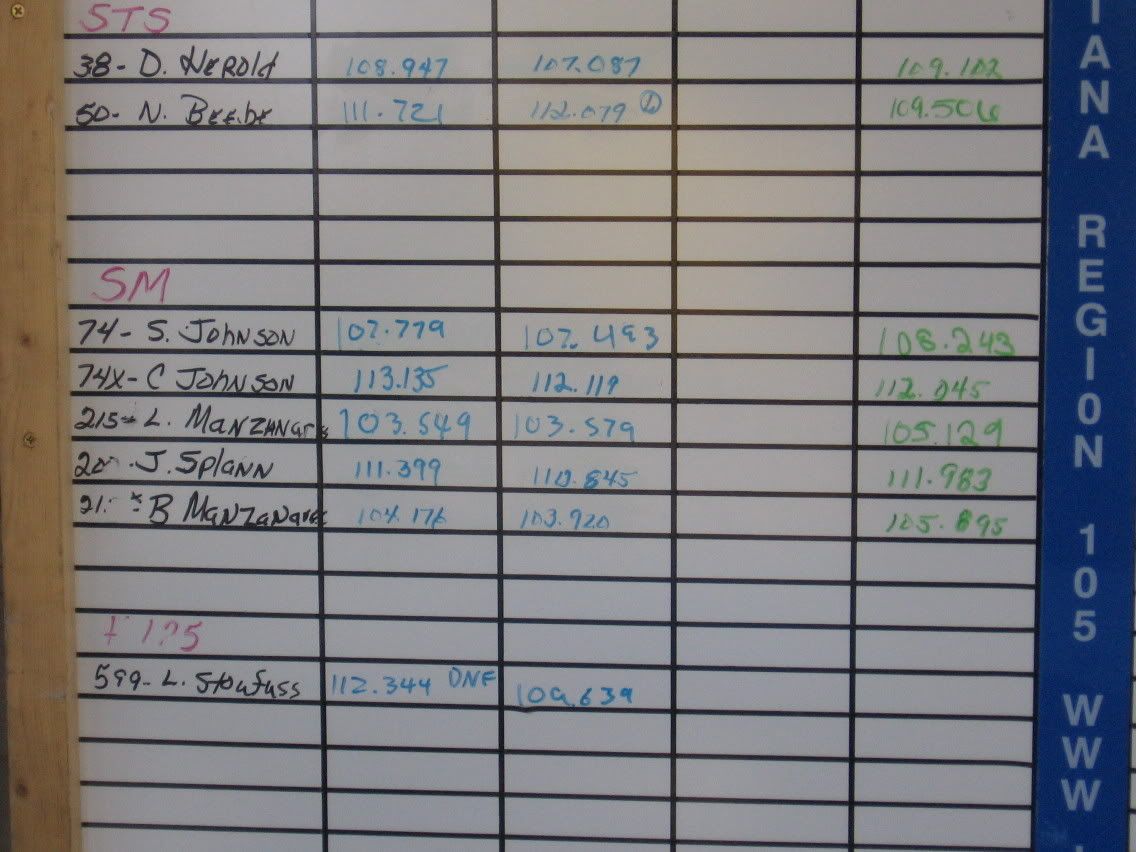 STS
38- D. Herold 108.947 107.087 109.102
50- N. Beebe 111.721 112.079 ① 109.506
SM
74- S. Johnson 107.779 107.493 108.243
74X- C Johnson 113.135 112.119 112.045
215- L. Manzanar s 103.549 103.579 105.129
20 J. Splann 111.399 110.845 111.983
21 B Manzanares 104.176 103.920 105.895
F125
599- L. Stoufuss 112.344 DNF 109.639
IANA REGION 105 WWW.